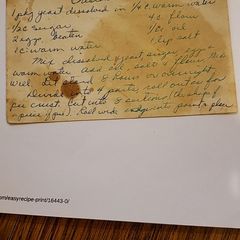 1 pkg yeast dissolved in 1/2 c. warm water
1/2 c sugar 4 c. flour
2 eggs beaten 1/2 c. oil
1 c. warm water 1 tsp salt
Mix dissolved yeast, sugar, eggs &
warm water. Add oil, salt & flour. Mix
well. Let stand 8 hours or overnight.
Divide into 4 parts, roll out as for
pie crust. Cut into 8 sections (the shape of
a piece of pie). Roll wide end into point & place
om/easyrecipe-print/16443-0/